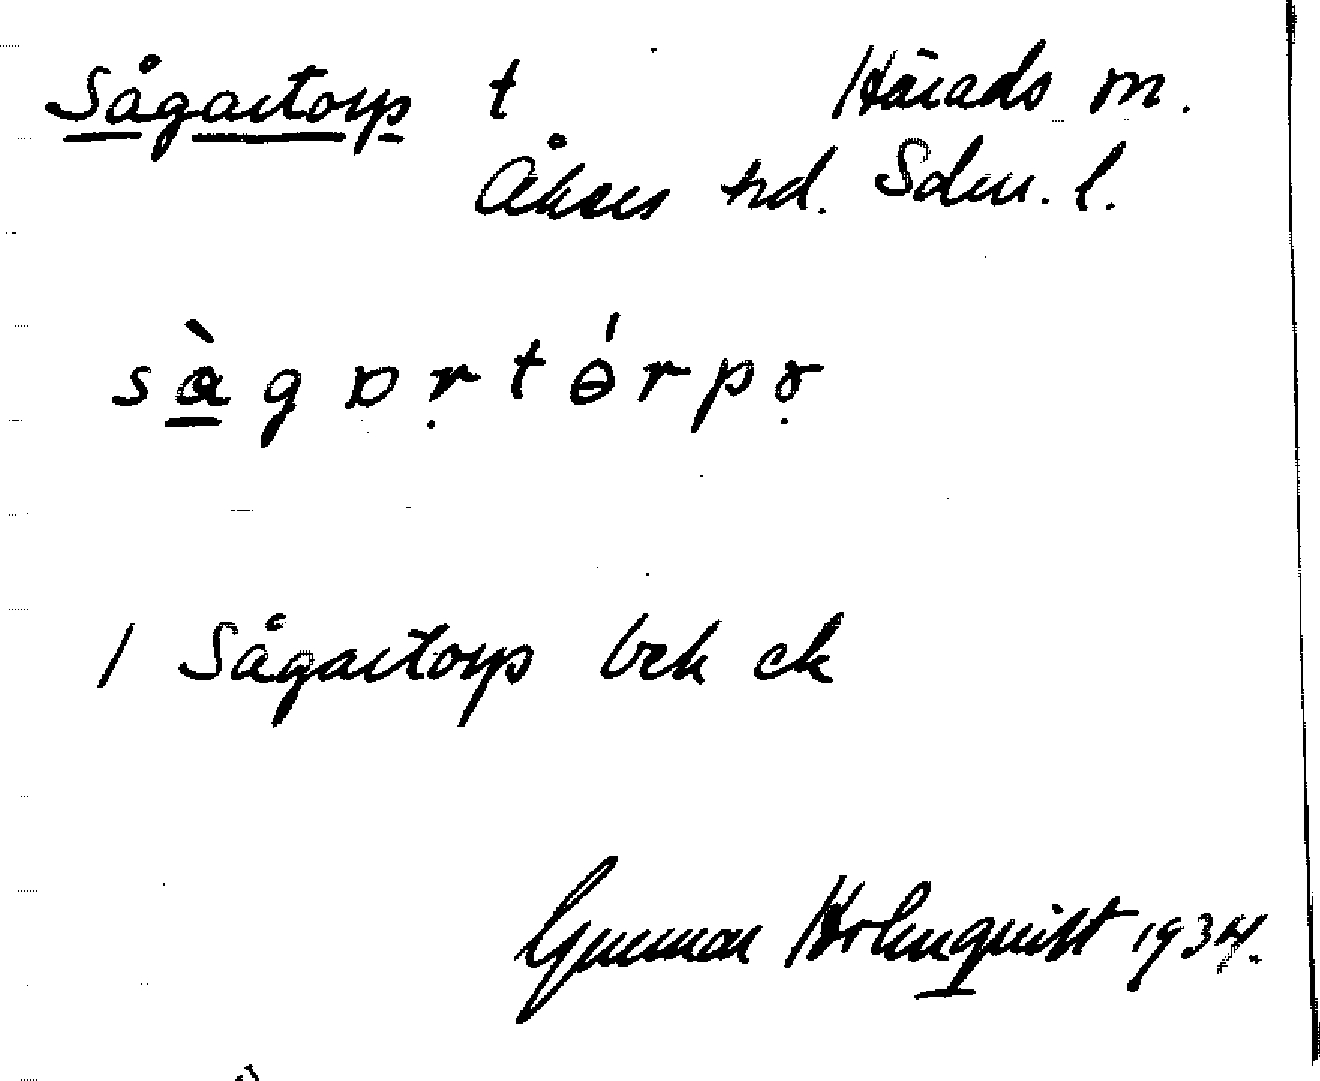 Sågartorp t Härads sn.
Åkers hd. Sdm. l.
sàgɒṛtɵ́rpɤ̣
1 Sågartorp bek ek
Gunnar Holmquist 1934.